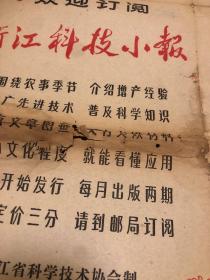 欢迎订阅
浙江科技小报
围绕农事季节 介绍增产经验
广先进技术 普及科学知识
文章图
文化程度 就能看懂应用
开始发行 每月出版两期
定价三分 请到邮局订阅
江省科学技术协会制